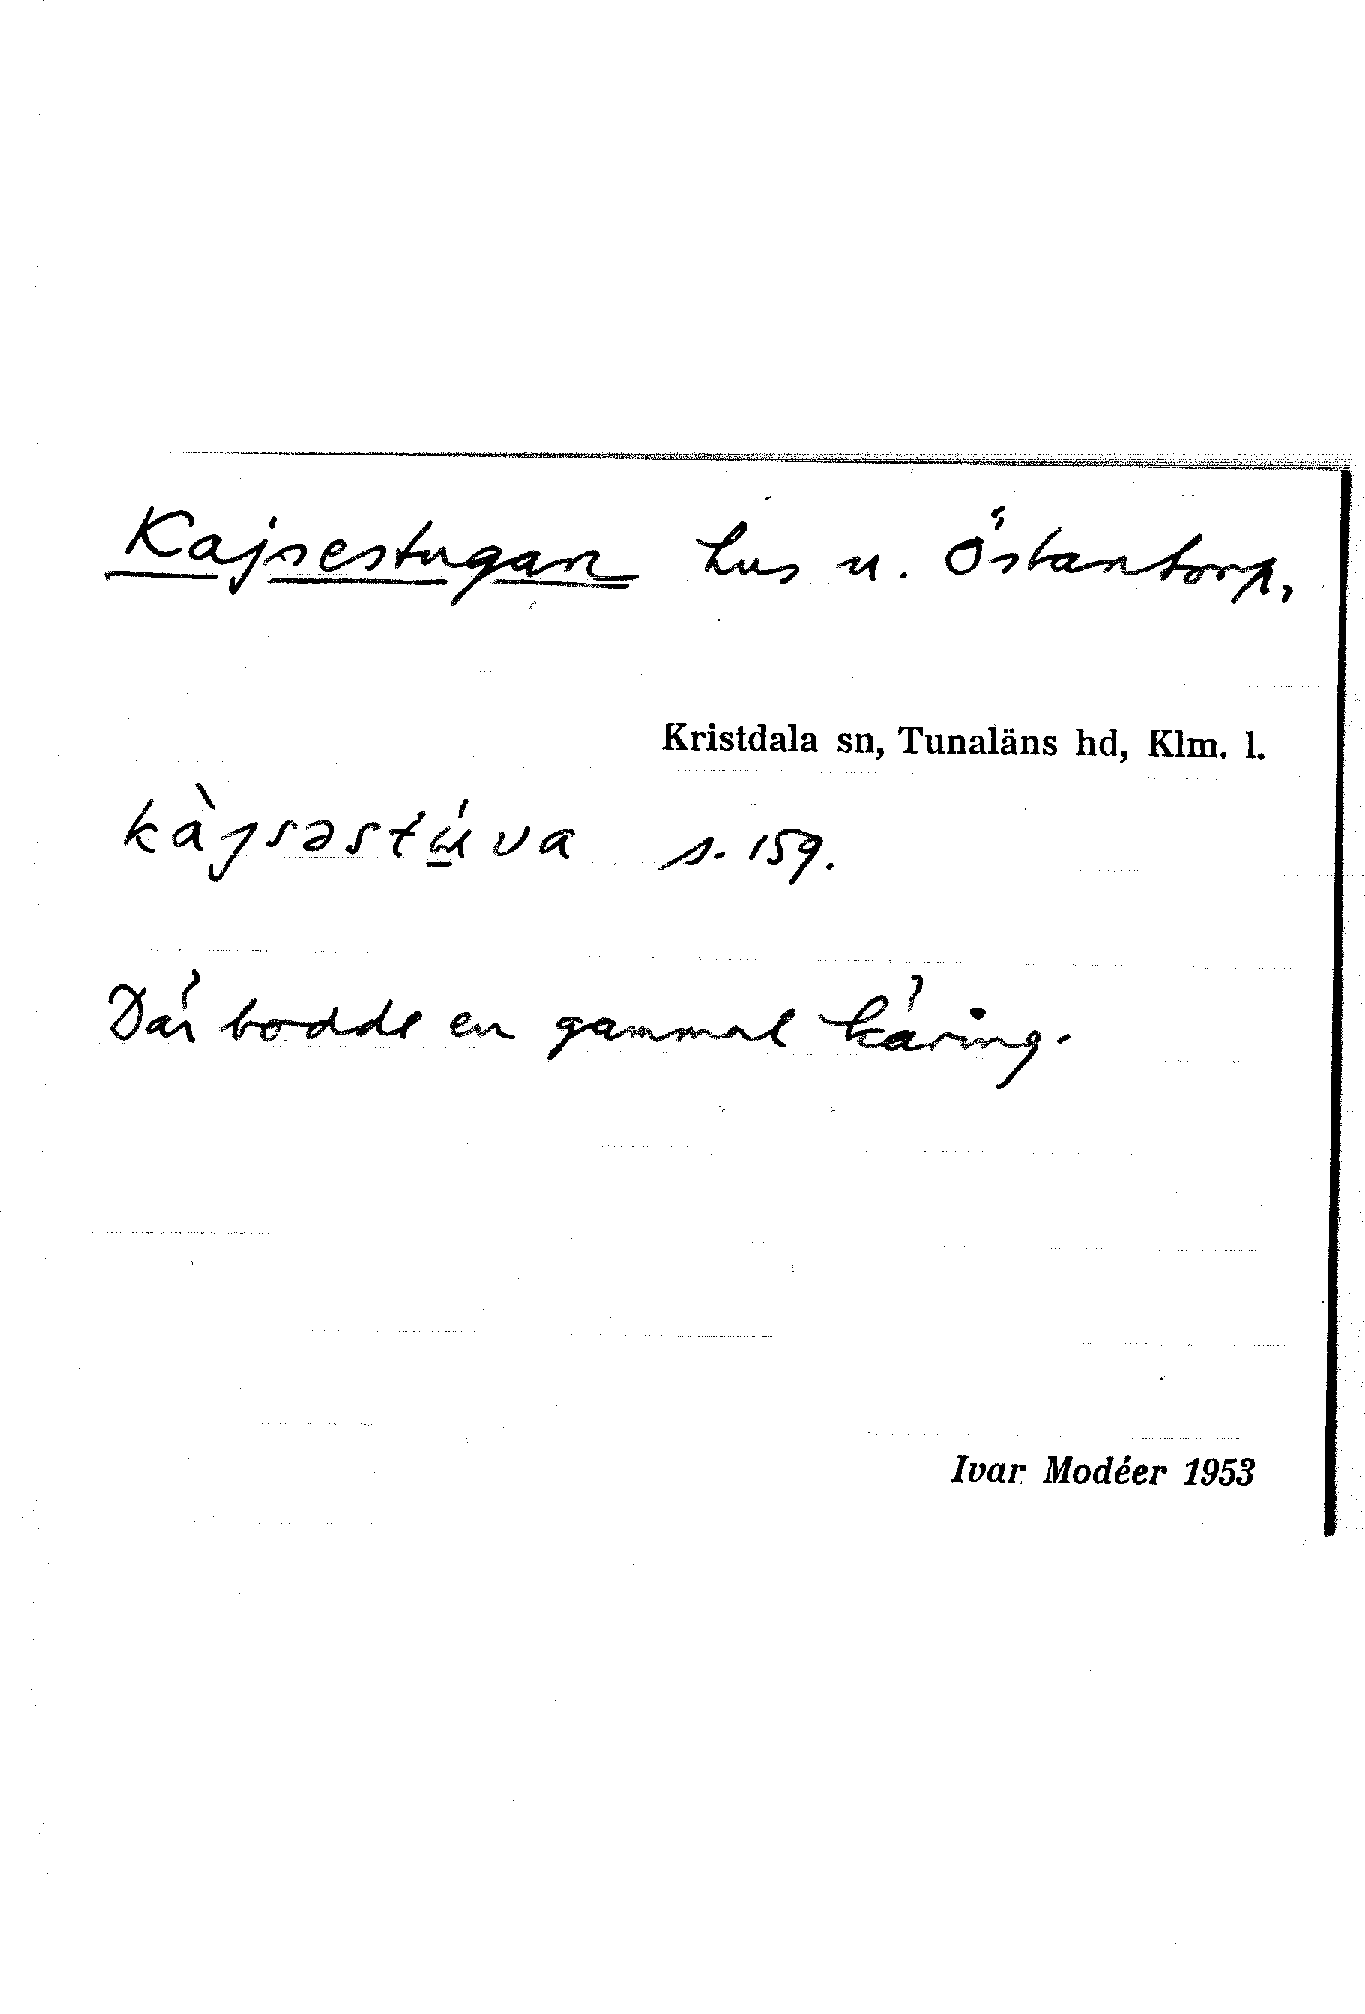 Kajsestugan hus u. Östantorp,
Kristdala sn, Tunaläns hd, Klm. l.
kàjsəstú̲va s. 159.
Där bodde en gammal käring.
Ivar Modéer 1953